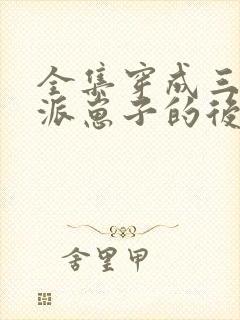 全集穿成三
派崽子的后
舍里甲